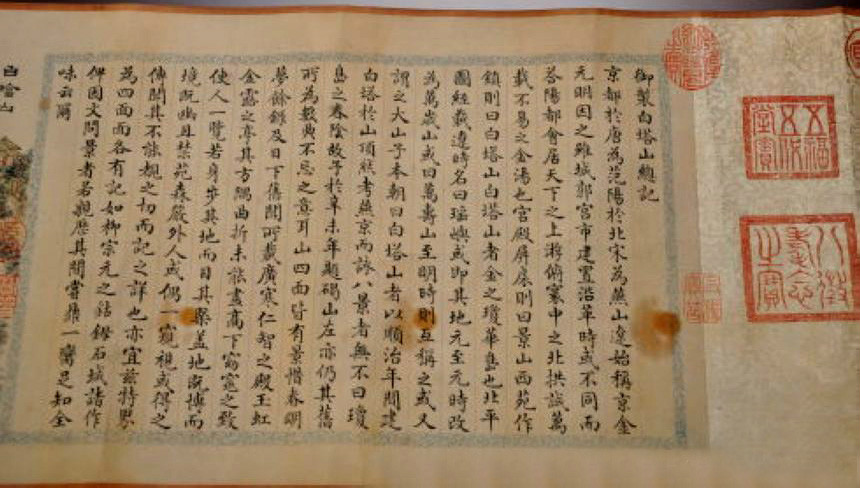 五福五代堂寶
八徵耄念之寶
御製白塔山總記
京都於唐為范陽於北宋為燕山遼始稱京金
元明因之雖城郭宮市建置沿革時或不同而
荅陽都會居天下之上游俯寰中之北拱誠萬
載不易之金湯也宮殿屏扆則曰景山西苑作
鎮則曰白塔山白塔山者金之瓊華島也北平
圖經載遼時名曰瑤嶼或即其地元至元時改
為萬歲山或曰萬壽山至明時則互稱之或又
謂之大山子本朝曰白塔山者以順治年間建
白塔於山頂然考燕京而詠八景者無不曰瓊
島之春陰故予於辛未年題碣山左亦仍其舊
所為數典不忘之意耳山四面皆有景惜春明
夢餘錄及日下舊聞所載廣寒仁智之殿玉虹
金露之亭其方隅曲折未能盡高下窈窕之致
使人一覽若身步其地而目其槩蓋地既博而
境既幽且禁苑森嚴外人或偶一窺視或得之
傳聞其不能覩之切而記之詳也亦宜茲特界
為四面面各有記如柳宗元之鈷鉧石城諸作
俾因文問景者若親歷其間嘗鼎一臠足知全
味云爾